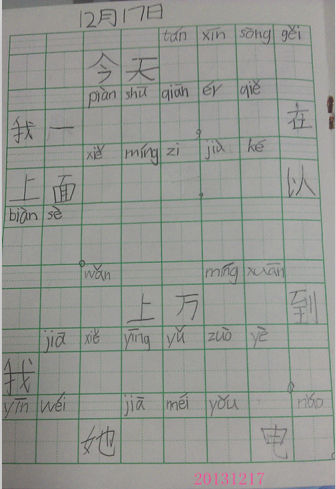 12月17日
今天 tán xīn sòng gěi
我一 piàn shū qiān ，ér qiě 在
上面 xiě míng zi ，jiù kě 以
biàn sè 。
wǎn 上万 míng xuān 到
我 jiā xiě yīng yǔ zuò yè 。
yīn wéi 她 jiā méi yǒu 电 nǎo
20131217